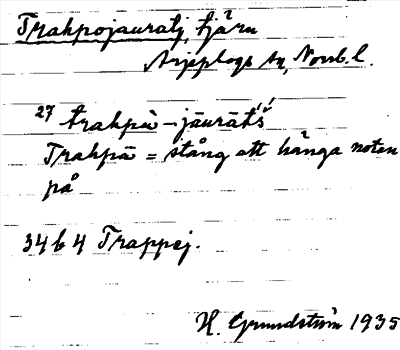 Trakpojauratj, tjärn
Arjeplogs sn, Norrb. l.
27 trakpà-jāurāt'š'
Trakpā = stång att hänga noten
på
34 b 4 Trappej.
H. Grundström 1935